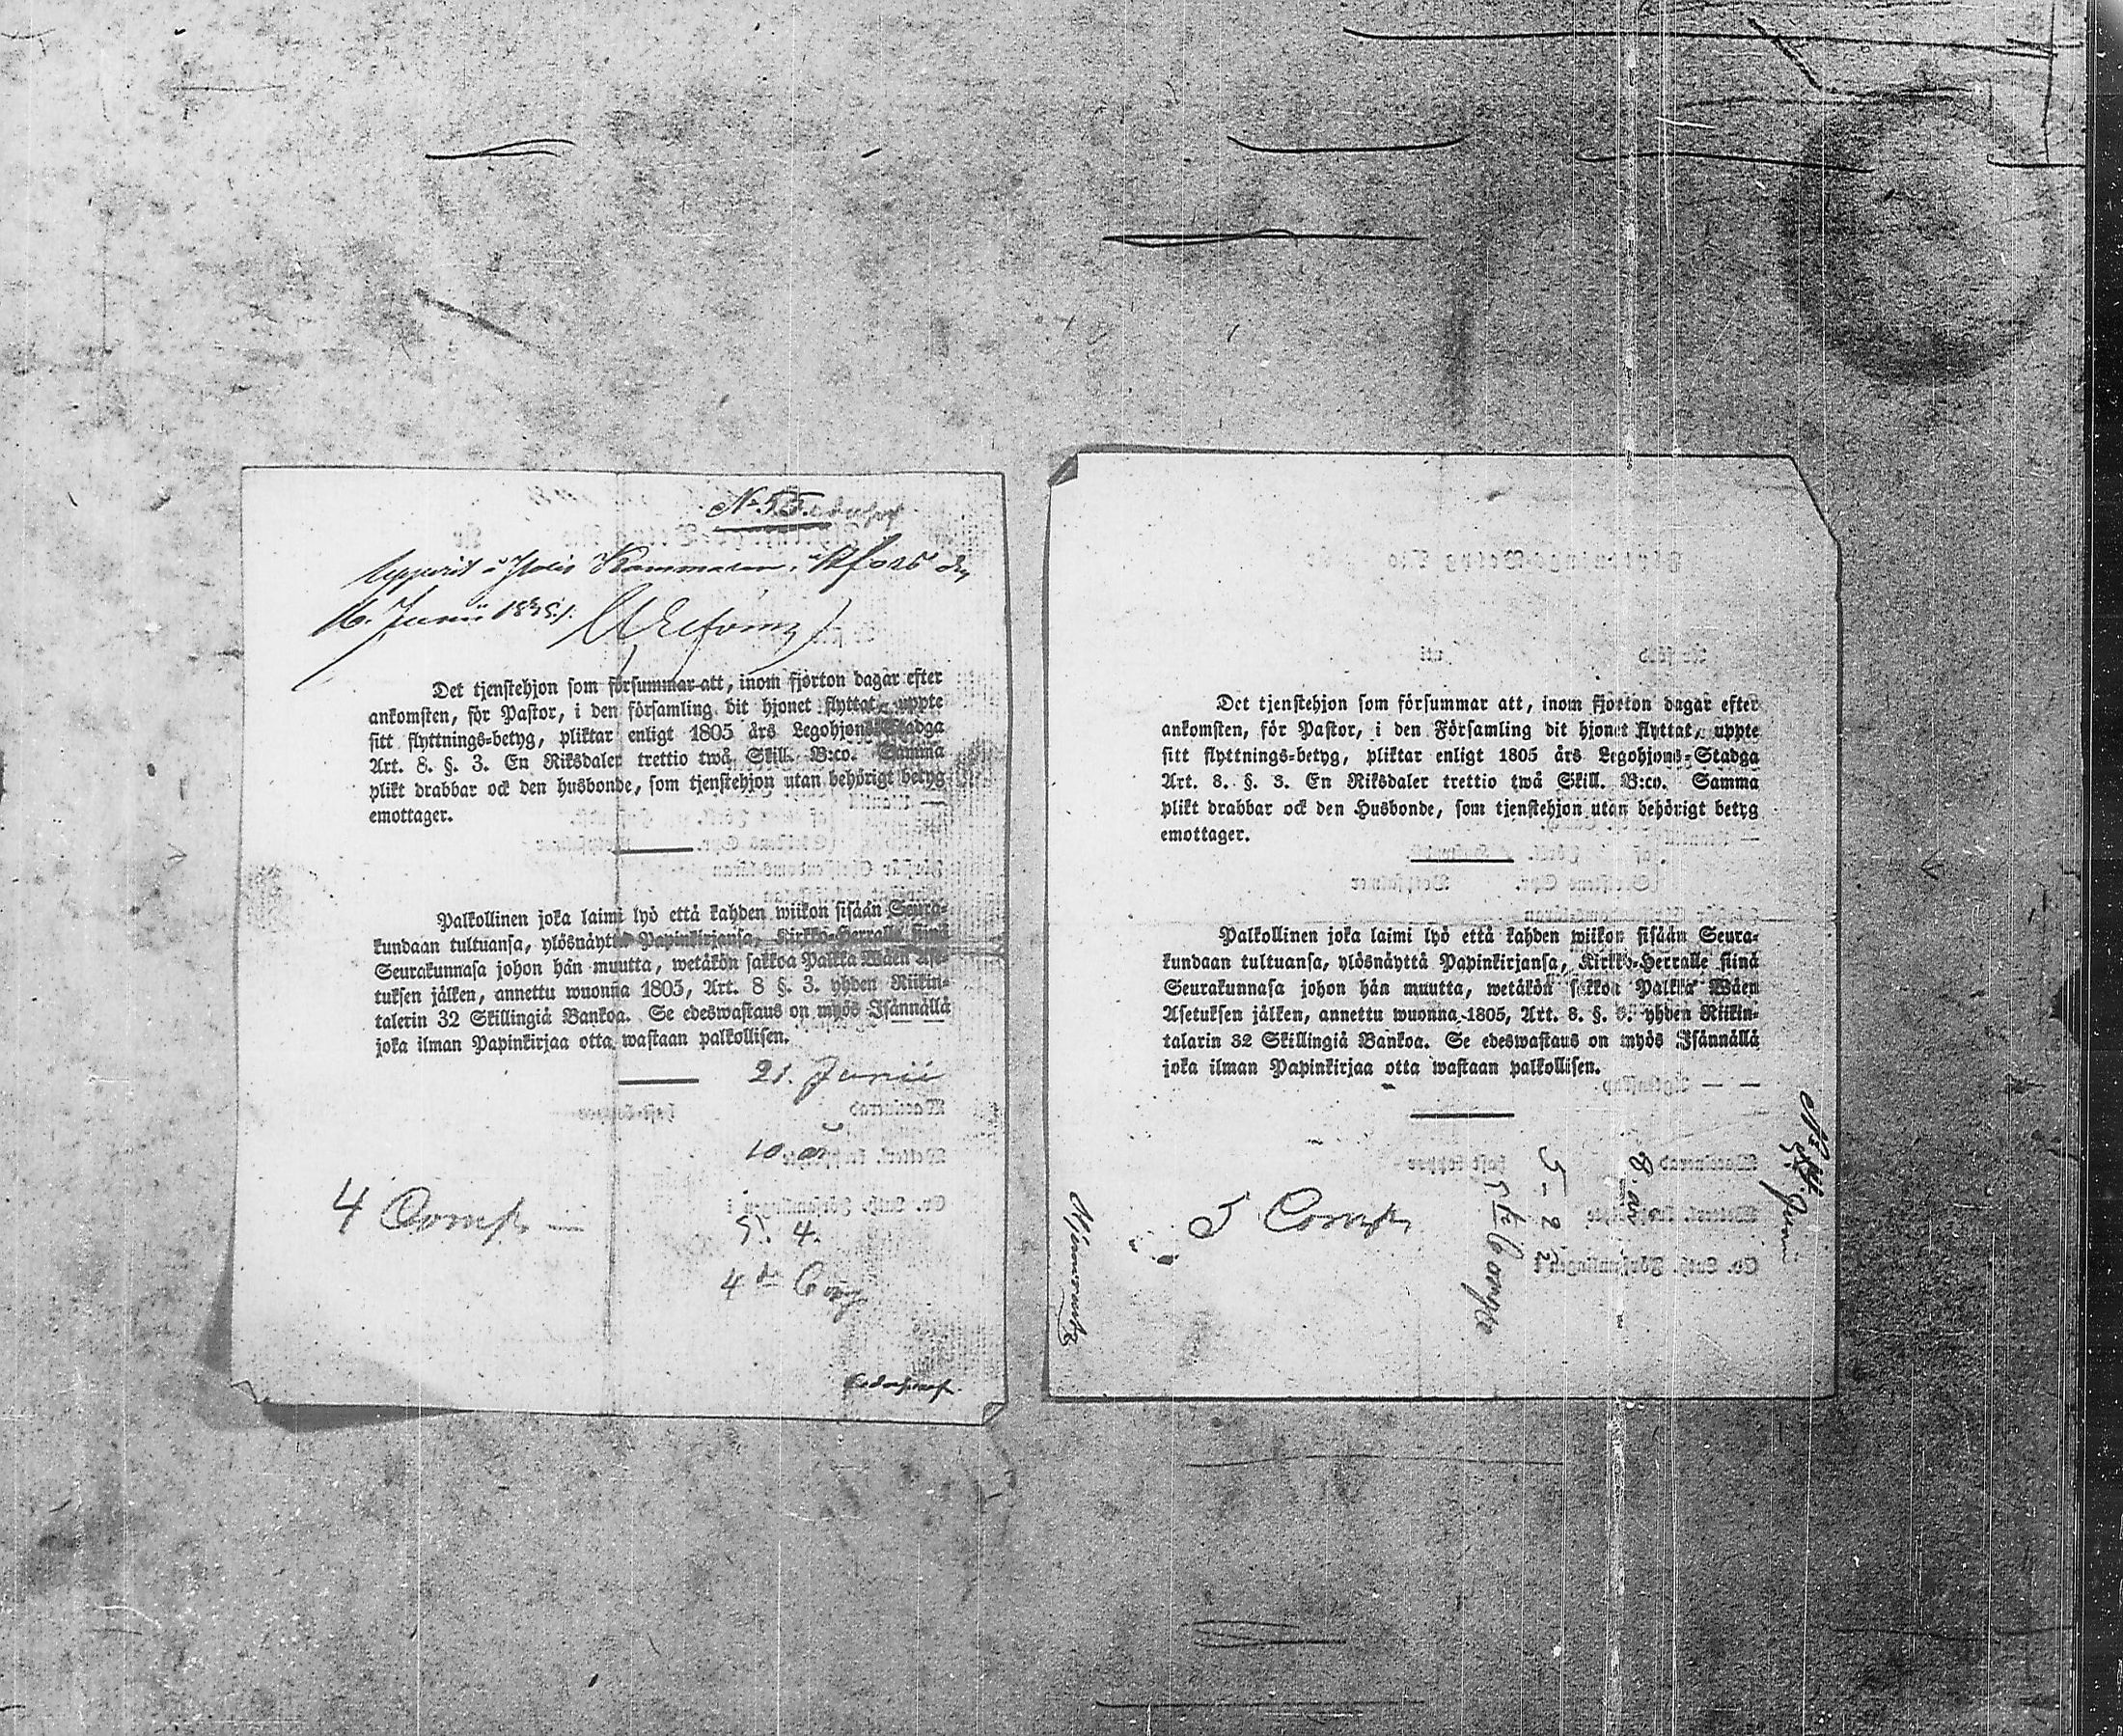 No 55.
Uppvist å Polis Kammaren i H:fors den
16. Junii
Det tjenstehjon som försummar att, inom fjorton dagar efter
ankomsten, för Pastor, i den församling dit hjonet flyttat, uppte
sitt flyttnings-betyg, pliktar enligt 1805 års Legohjons-Stadga
Art. 8. §. 3. En Riksdaler trettio twå Skill. B:co. Samma
plikt drabbar ock den husbonde, som tjenstehjon utan behörigt betyg
emottager.
Palkollinen joka laimi lyö että kahden wiikon sisään Seura-
kundaan tultuansa, ylösnäyttä Papinkirjansa, Kirkko-Herralle siinä
Seurakunnasa johon hän muutta, wetäkön sakkoa Palkka Wäen Ase-
tuksen jälken, annettu wuonna 1805, Art. 8 §. 3. yhden Riikin-
talerin 32 Skillingiä Bankoa. Se edeswastaus on myös Isännällä
joka ilman Papinkirjaa otta wastaan palkollisen.
21. Junii
10. år
4 Comp. —
5. 4.
4de Comp
Det tjenstehjon som försummar att, inom fjorton dagar efter
ankomsten, för Pastor, i den Församling dit hjonet flyttat, uppte
sitt flyttnings-betyg, pliktar enligt 1805 års Legohjons-Stadga
Art. 8. §. 3. En Riksdaler trettio twå Skill. B:co. Samma
plikt drabbar ock den Husbonde, som tjenstehjon utan behörigt betyg
emottager.
Palkollinen joka laimi lyö että kahden wiikon sisään Seura-
kundaan tultuansa, ylösnäyttä Papinkirjansa, Kirkko-Herralle siinä
Seurakunnasa johon hän muutta, wetäkön sakkoa Palkka Wäen
Asetuksen jälken, annettu wuonna 1805, Art. 8. §. 3. yhden Riikin-
talarin 32 Skillingiä Bankoa. Se edeswastaus on myös Isännällä
joka ilman Papinkirjaa otta wastaan palkollisen.
Junii
8. år
5 - 2
5te Comp
5 Comp.